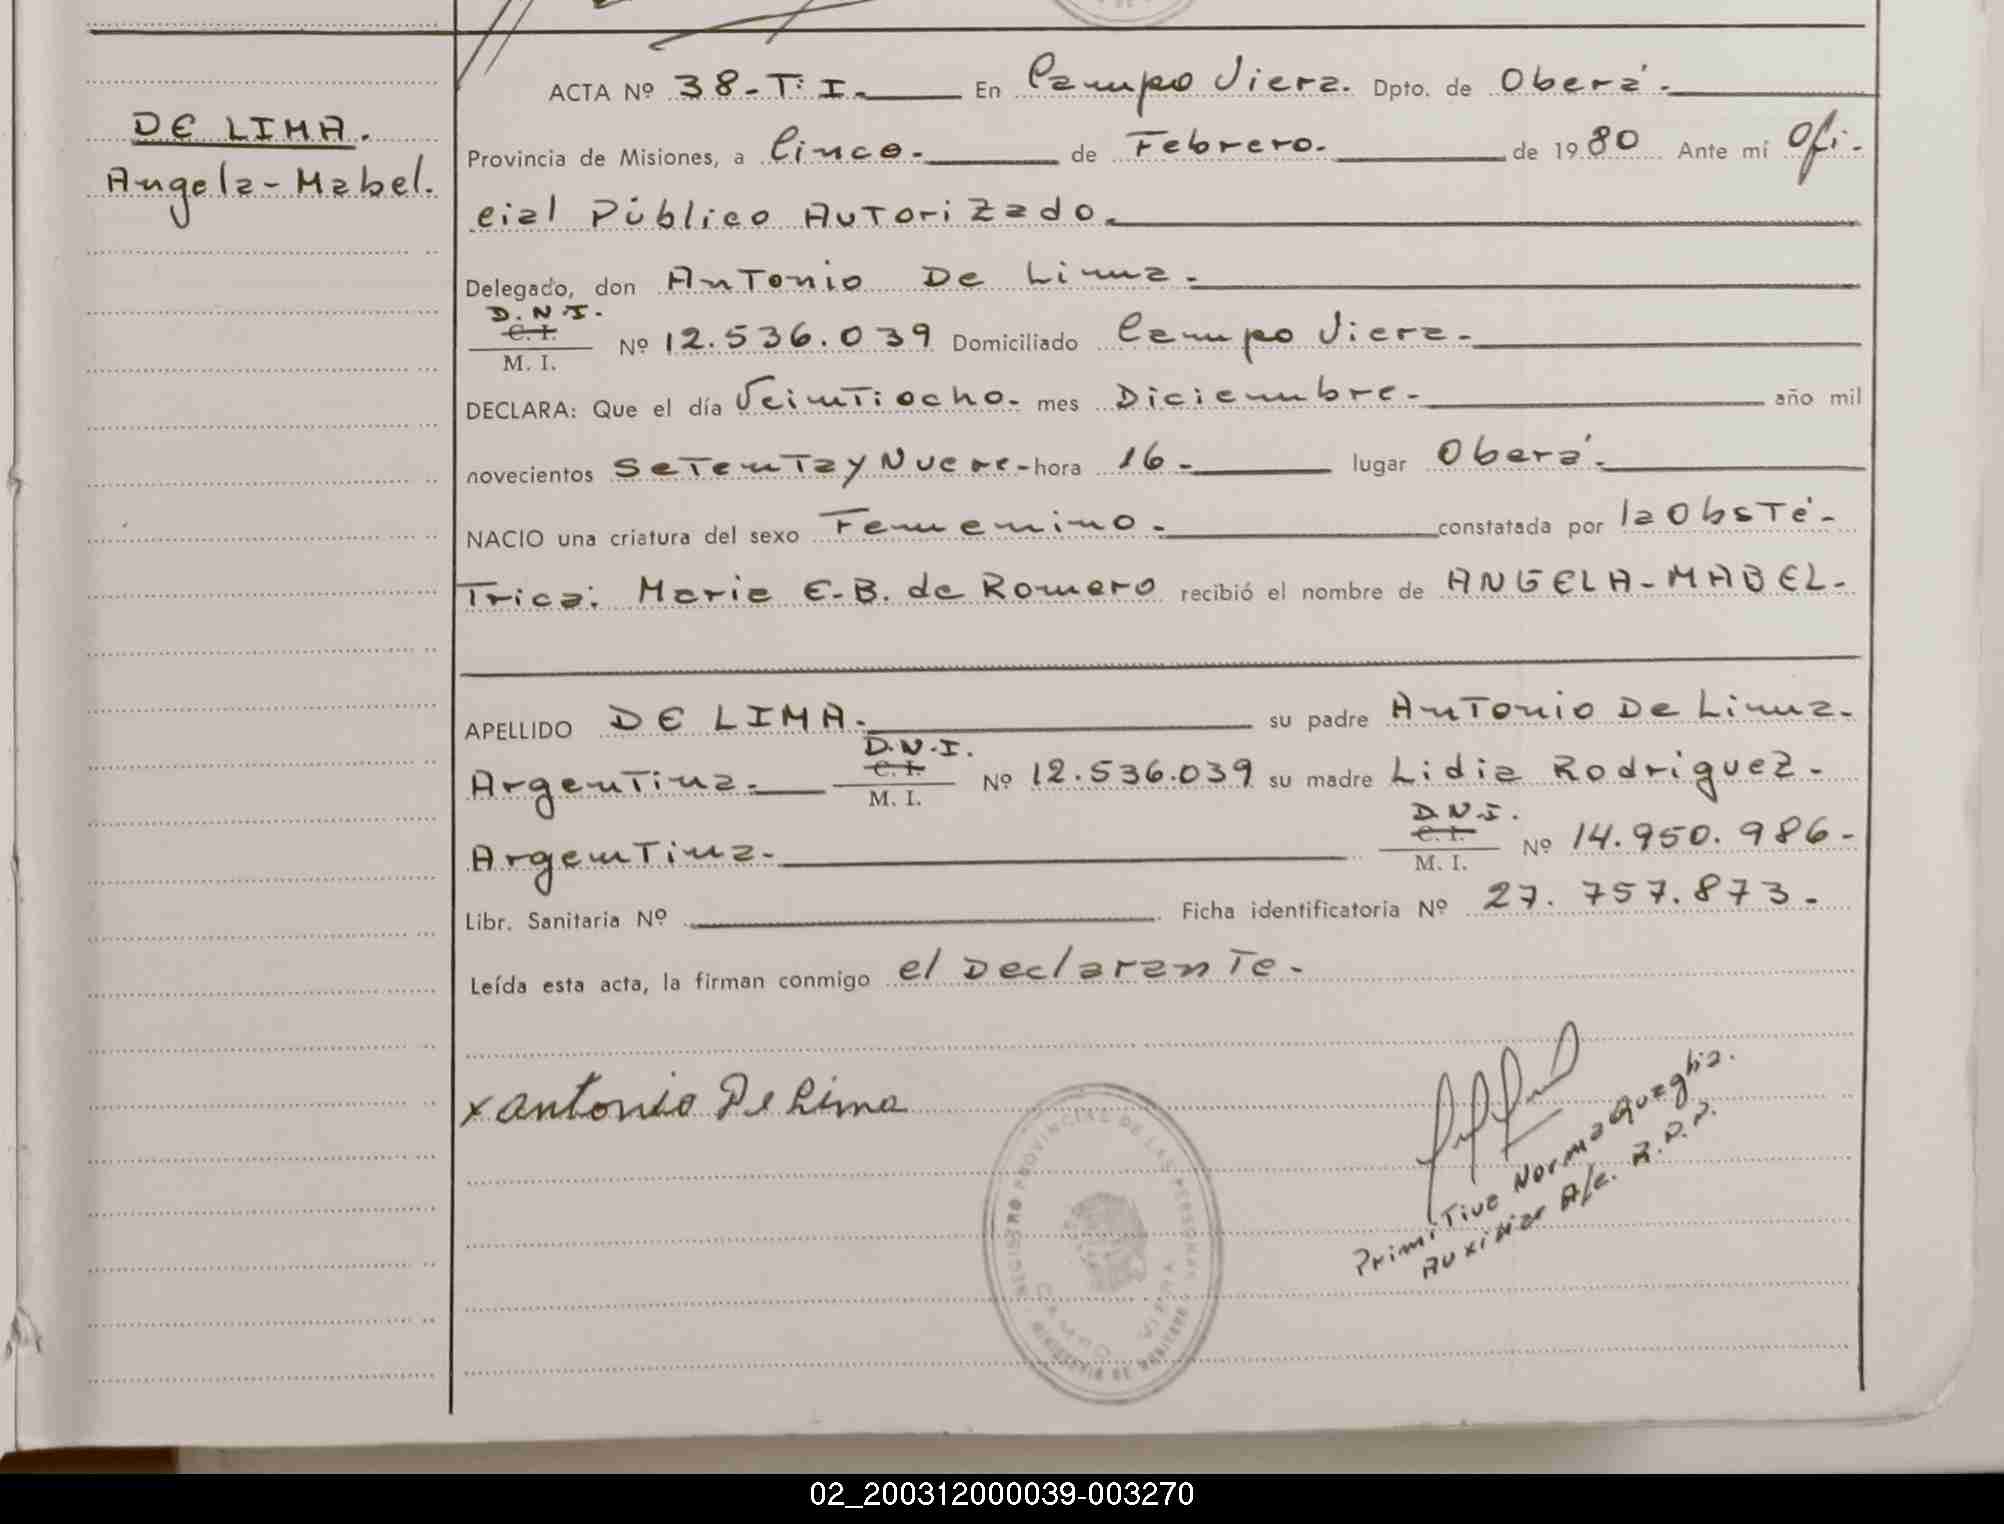 ACTA Nº 38-T: I.- En Campo Viera. Dpto. de Oberá.-
DE LIMA.
Angela-Mabel.
Provincia de Misiones, a Cinco.- de Febrero.- de 1980 Ante mí Ofi-
cial Público Autorizado.
Delegado, don Antonio De Lima.-
D.N.I.
C. I.
M. I. Nº 12.536.039 Domiciliado Campo Viera.-
DECLARA: Que el día Veintiocho.- mes Diciembre.- año mil
novecientos Setenta y Nueve.- hora 16.- lugar Oberá.-
NACIO una criatura del sexo Femenino.- constatada por la Obsté-
trica: Maria E.B. de Romero recibió el nombre de ANGELA-MABEL.-
APELLIDO DE LIMA.- su padre Antonio De Lima.-
D.N.I.
Argentina.- C. I.
M. I. Nº 12.536.039 su madre Lidia Rodriguez.-
D.N.I.
Argentina.- C. I.
M. I. Nº 14.950.986-
Libr. Sanitaria Nº Ficha identificatoria Nº 27.757.873.-
Leída esta acta, la firman conmigo el Declarante.-
x Antonio De Lima
REGISTRO PROVINCIAL DE LAS PERSONAS
CAMPO VIERA
MINISTERIO DE
Primitiva Norma Quaglia.
Auxiliar A/c. R.P.P.
02_200312000039-003270